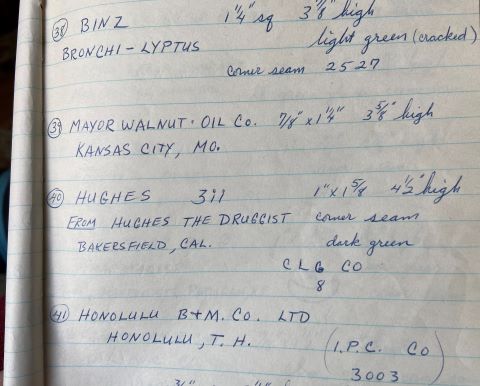 38 BINZ 1 1/4" sq 3 7/8" high
BRONCHI-LYPTUS light green (cracked)
corner seam 2527
39 MAYOR WALNUT·OIL CO. 7/8" x 1 1/4" 3 5/8" high
KANSAS CITY, MO.
40 HUGHES 3ii 1" x 1 5/8 4 1/2" high
FROM HUGHES THE DRUGGIST corner seam
BAKERSFIELD, CAL. dark green
CLG CO
8
41 HONOLULU B+M. CO. LTD
HONOLULU, T. H. (I.P.C. CO
3003)